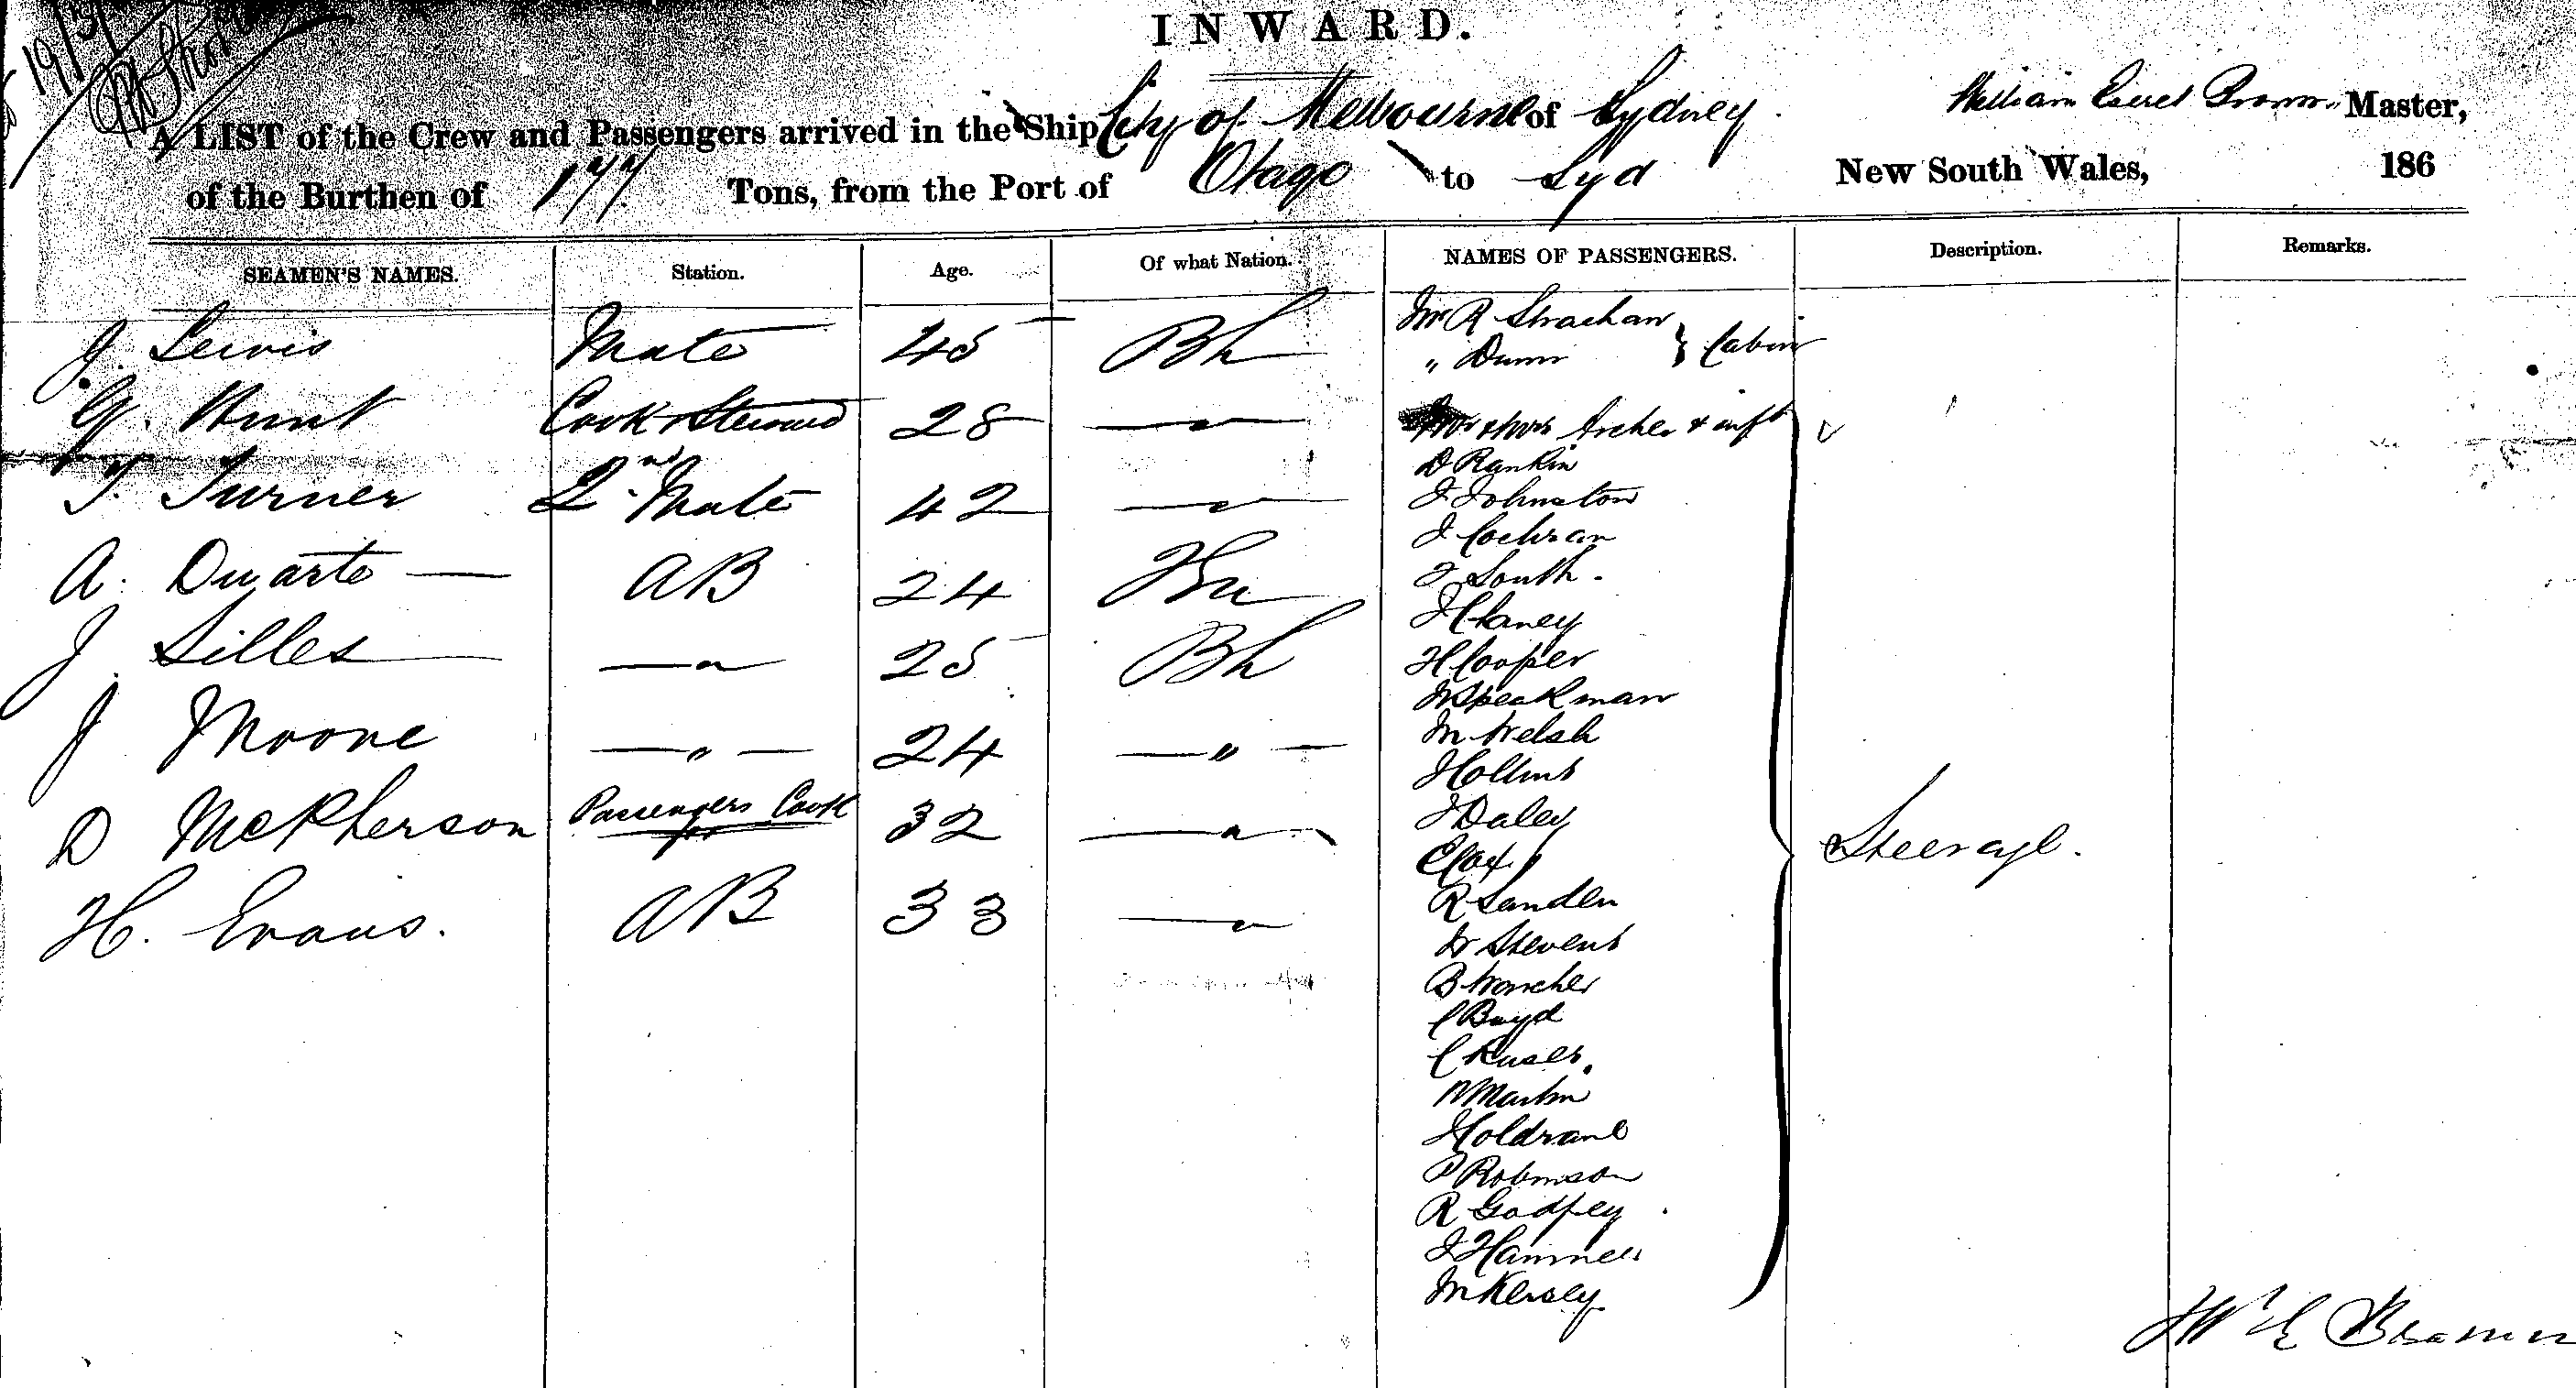 INWARD.
A LIST of the Crew and Passengers arrived in the Ship City of Melbourne of Sydney. William Brown Master,
of the Burthen of 177 Tons, from the Port of Otago to Syd New South Wales, 186
SEAMEN'S NAMES. Station. Age. Of what Nation. NAMES OF PASSENGERS. Description. Remarks.
J. Lewis Mate 45 Bh
G. Hunt Cook & Steward 28 — " —
T. Turner 2nd Mate 42 — " —
A. Duarte — AB 24
J. Silles — " — 25 Bh
J Moore — " — 24 — " —
D McPherson Passengers Cook 32 — " —
H. Evans. AB 33 — " —
Mr R Strachan
" Dunn } Cabin
Mr & Mrs Archer & inft
D Rankin
J Johnston
J Cochran
J South.
J Haney
H Cooper
W Speakman
M Welsh
J Collins
J Daley
C Cox
R Sanden
W Stevens
B
C Boyd
C
W Martin
Holdrane
P Robinson
R Godfrey
J Hammell
M Kersey
Steerage.
Wm E Brown